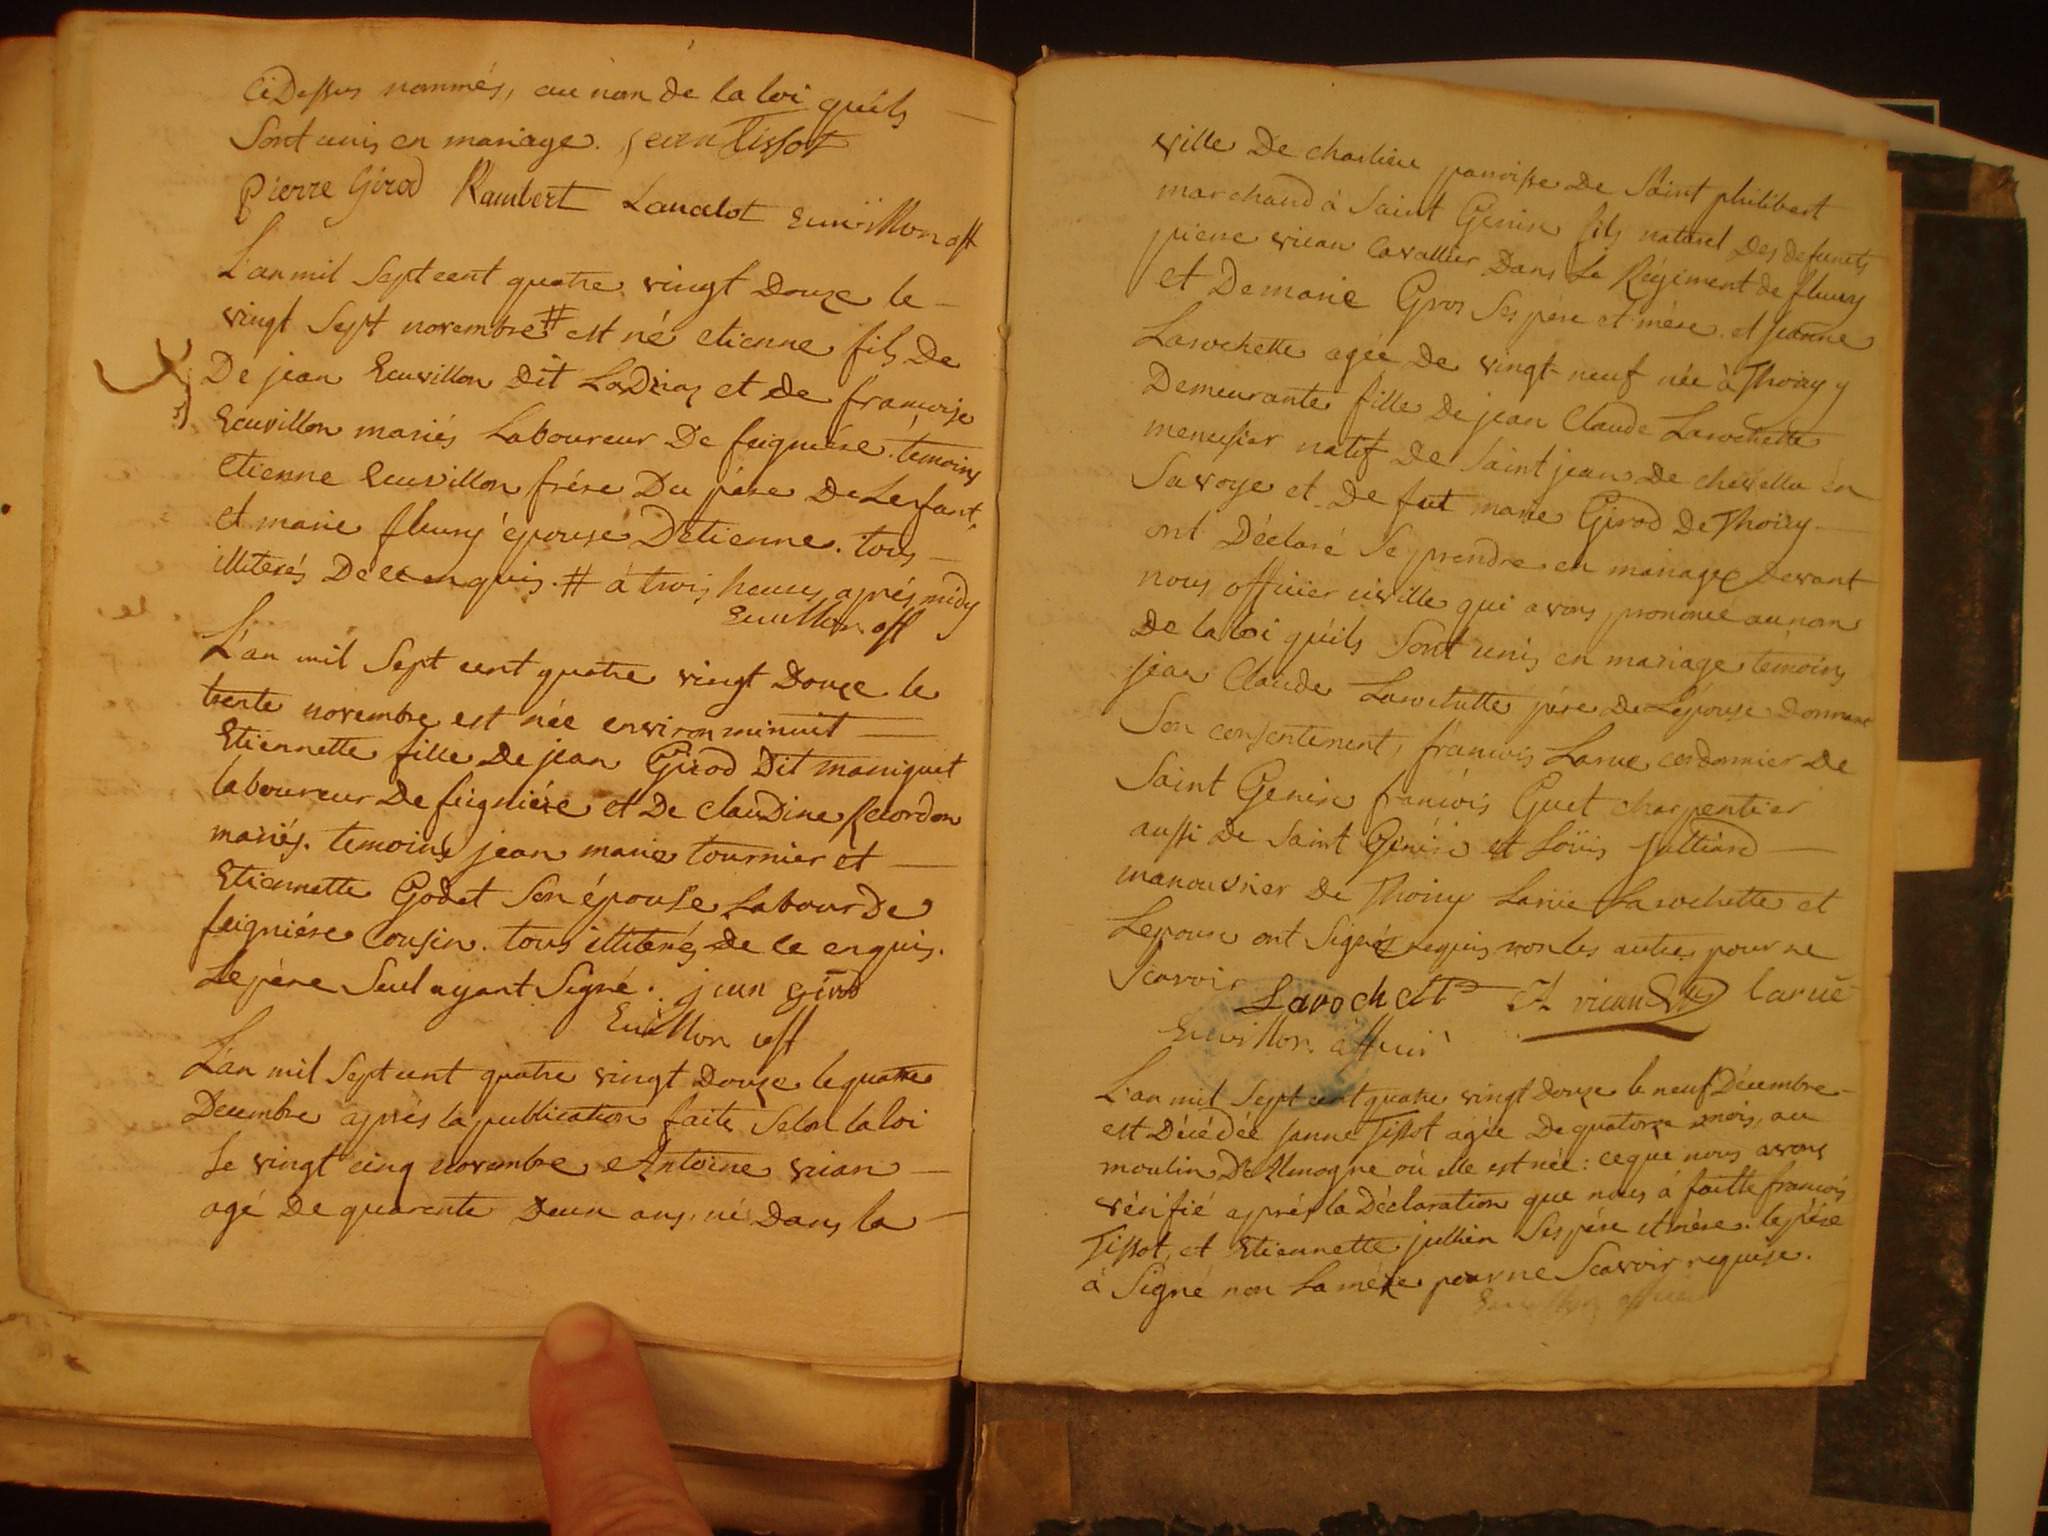 cidessus nommés, au nom de la loi qu'ils
Sont unis en mariage. jean Tissot
Pierre Girod Rambert Lancelot Ecuvillon off
L'an mil Sept cent quatre vingt Douze le
vingt Sept novembre # est né etienne fils De
De jean Ecuvillon Dit et de francoise
Ecuvillon mariés Laboureur De feigniére. temoins
etienne Ecuvillon frére Du pére De Lenfant,
et marie fleury épouse D'etienne. tous
illiterés De ce enquis. # à trois heures aprés midy
Ecuvillon off
L'an mil Sept cent quatre vingt Douze le
trente novembre est née environ minuit
Etiennette fille De jean Girod Dit maniguet
laboureur De feigniére et De Claudine Recordon
mariés. temoins jean marie tournier et
Etiennette Godet Son épouse Labour De
feigniére Cousin. tous illiterés De ce enquis.
Le pére Seul ayant Signé. jean girod
Ecuvillon off
L'an mil Sept cent quatre vingt Douze le quatre
Decembre aprés la publication faite Selon la loi
Le vingt cinq novembre Antoine vican
agé De quarente Deux ans, né Dans la
ville De charlieu paroisse De Saint philibert
marchand à Saint Genix fils naturel Des defunts
pierre vican Cavallier Dans Le Régiment de fleury
et De marie Gros Ses pére et mére. et Jeanne
Larochette agée De vingt-neuf née à Thoiry y
Demeurante fille De jean Claude Larochette
menusier natif De Saint jean De chevellu en
Savoye et De fut marie Girod De Thoiry
ont Déclaré Se prendre en mariage Devant
nous officier civille qui avons prononcé au nom
De la loi qu'ils Sont unis en mariage temoins
jean Claude Larochette pére De Lépouse Donnant
Son consentement, francois Larue cordonnier De
Saint Genix francois Guet charpentier
aussi De Saint Genix et Loüis Julliard
manouvrier De Thoiry Larue Larochette et
Lepouse ont Signé requis non les autres pour ne
Scavoir Larochette A vican larue
Ecuvillon officier
L'an mil Sept cent quatre vingt Douze le neuf Décembre
est Décédée Janne Tissot agée De quatorze mois, au
moulin D'Allemogne où elle est née: ce que nous avons
vérifié aprés la Déclaration que nous à faitte francois
Tissot, et Etiennette jullien Ses pére et mére. le pére
à Signé non La mére pour ne Scavoir requise.
Ecuvillon officier